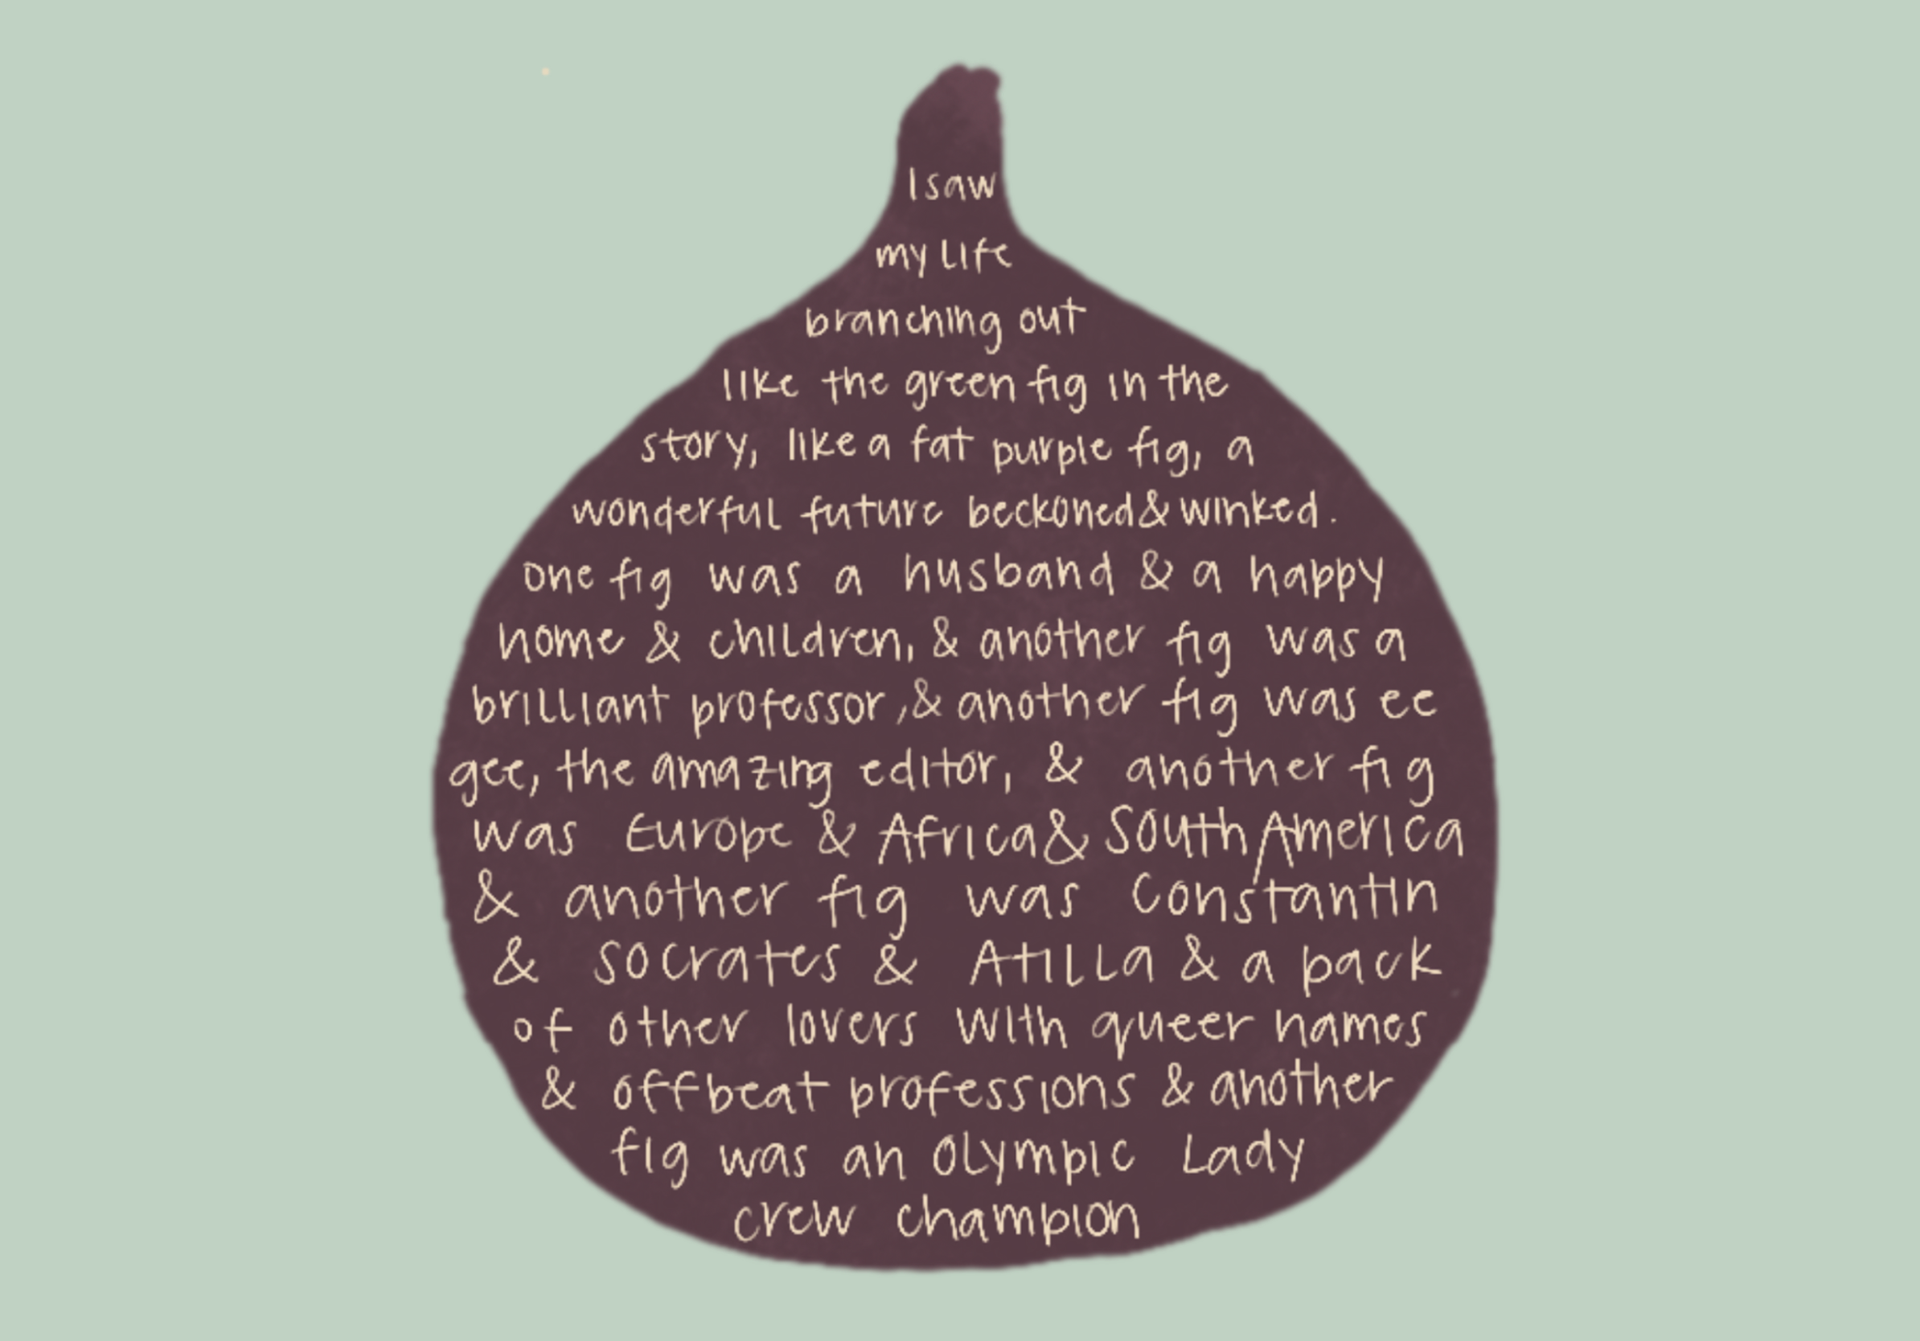 I saw
my life
branching out
like the green fig in the
story, like a fat purple fig, a
wonderful future beckoned & winked.
one fig was a husband & a happy
home & children, & another fig was a
brilliant professor, & another fig was ee
gee, the amazing editor, & another fig
was Europe & Africa & South America
& another fig was Constantin
& socrates & Atilla & a pack
of other lovers with queer names
& offbeat professions & another
fig was an Olympic Lady
crew champion